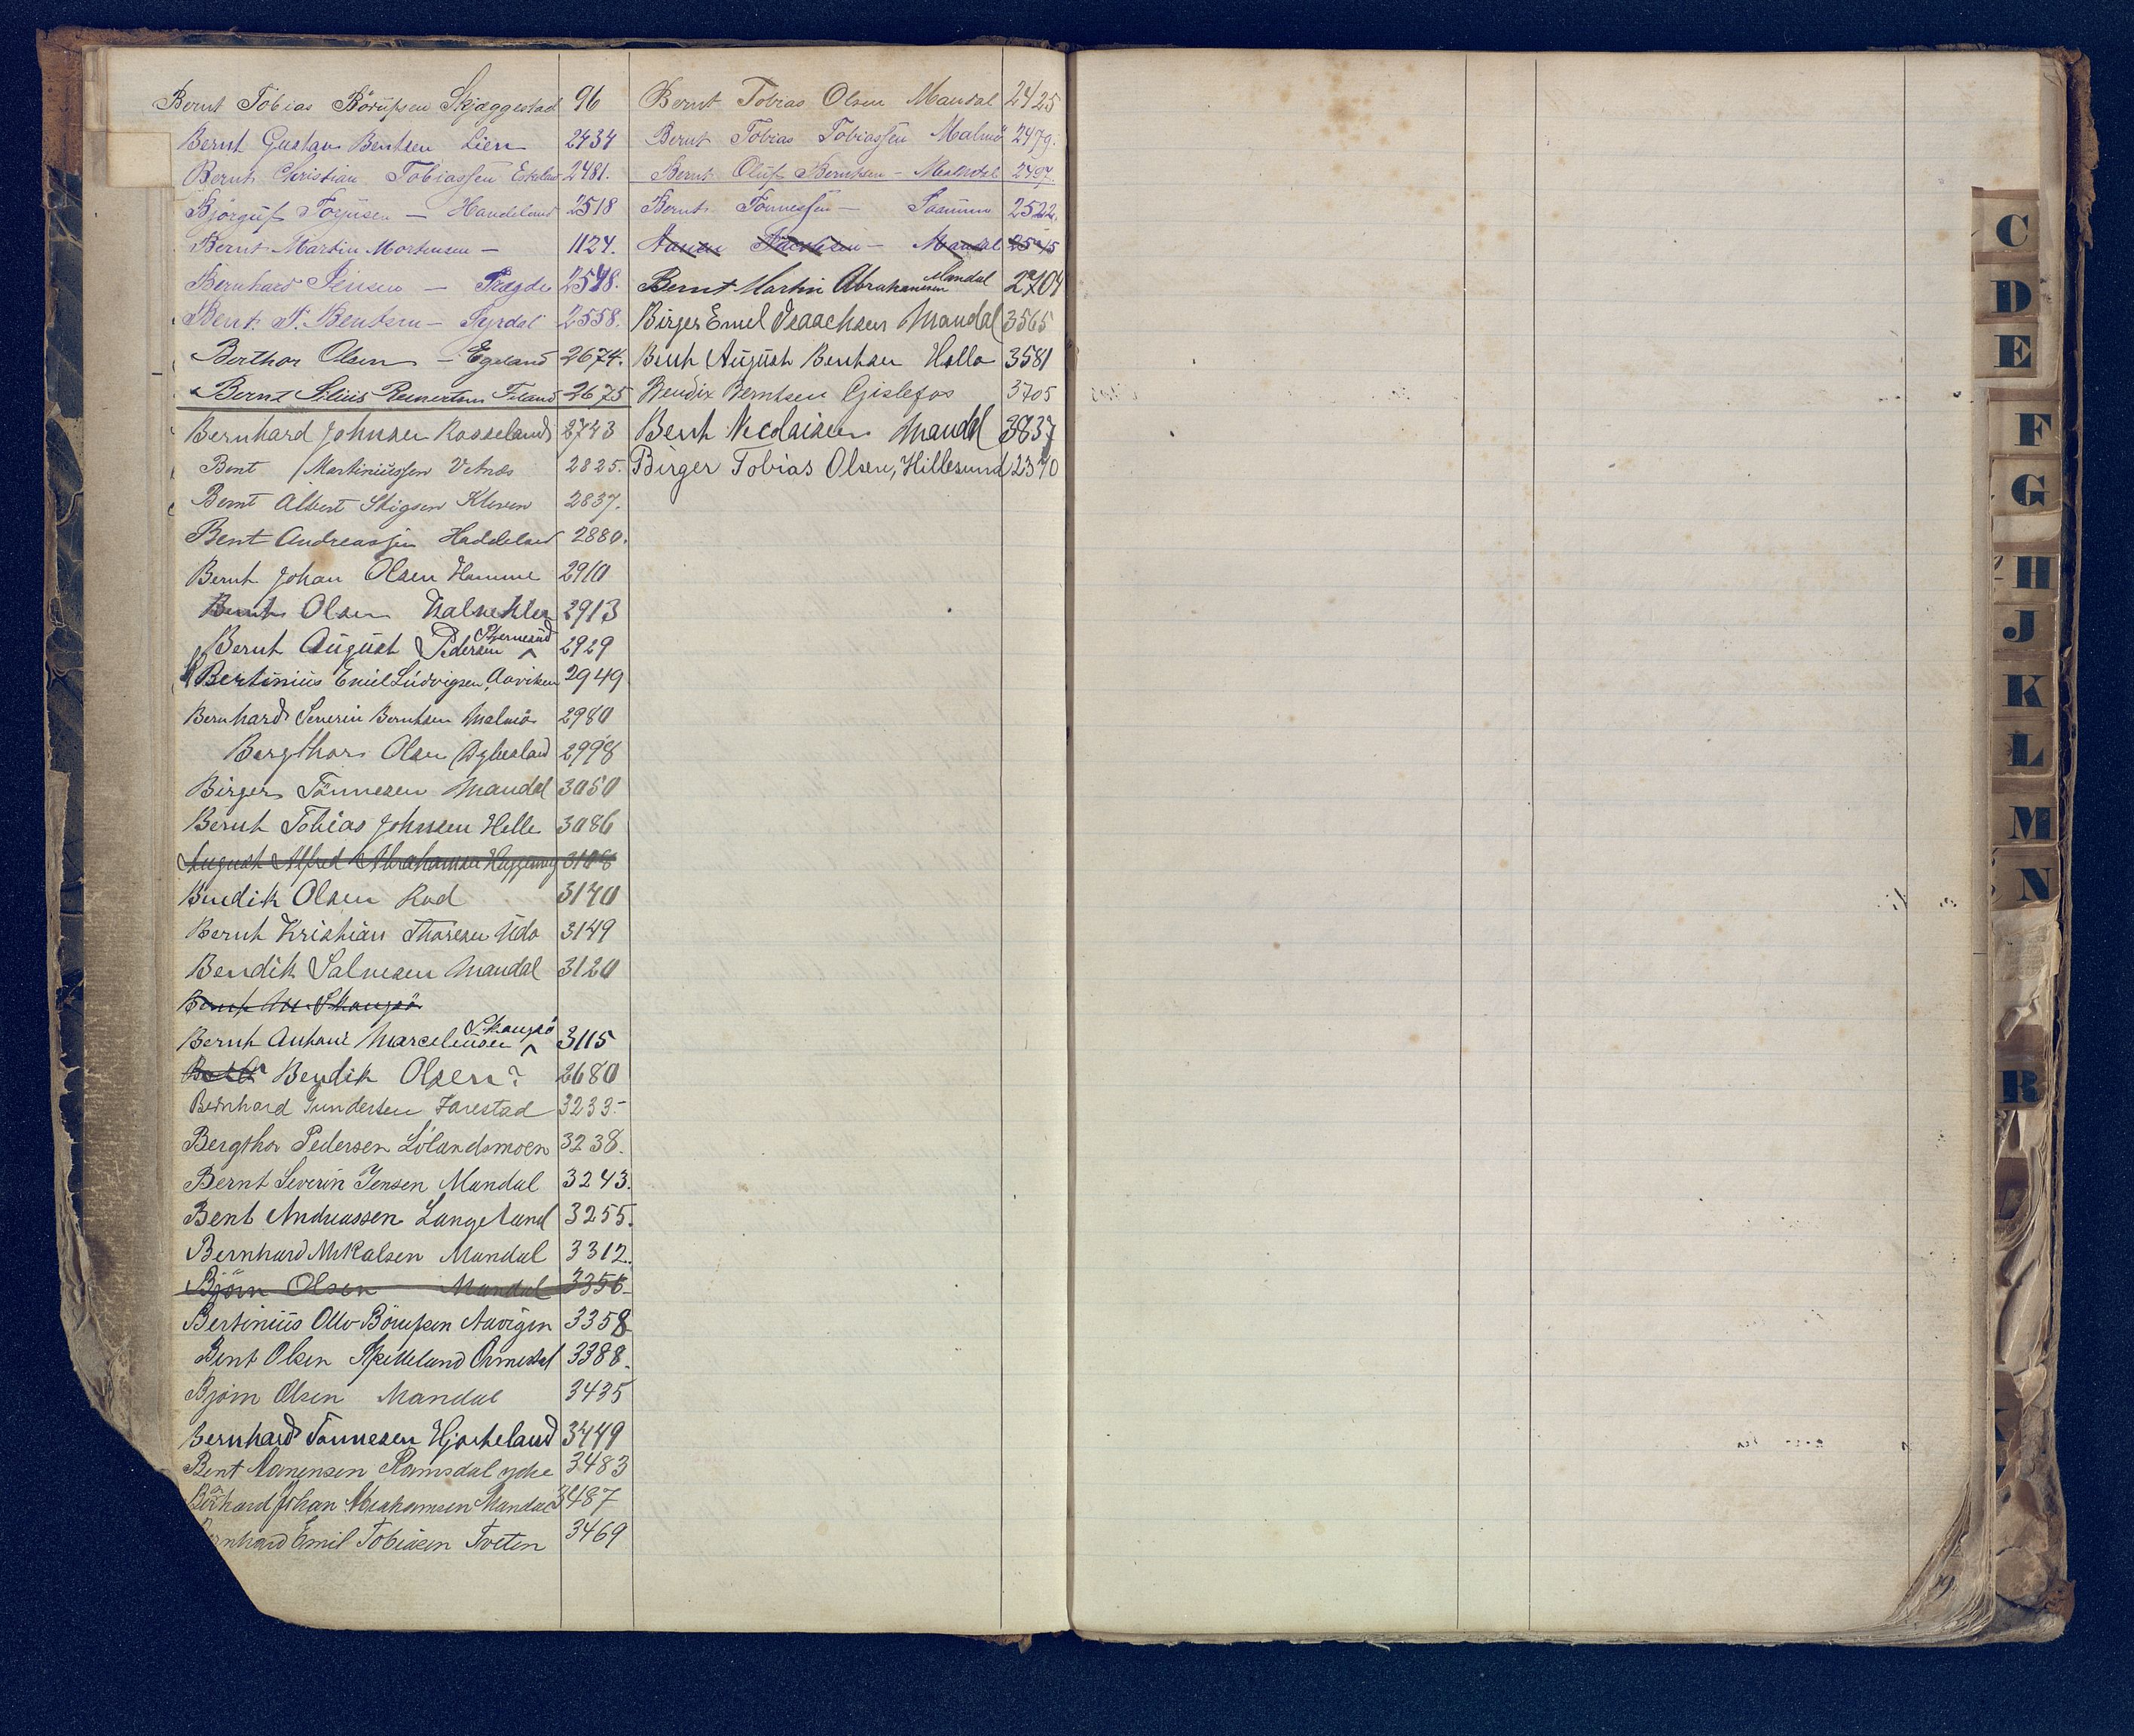 Bernt Tobias Börufsen Skjæggestad 96
Bernt Gustav Bentsen Lien 2434
Bernt Christian Tobiassen 2481.
Björguf Torjusen — Haadeland 2518
Bernt Martin Mortensen — 1124.
Bernhard Jensen — Trægde 2548.
Bent T. Bentsen — Syrdal 2558.
Berthor Olsen — Egeland 2674.
Bernt Silius Reinertsen Tiland 2675
Bernhard Johnsen Rosseland 2743
Bent Martiniussen Vetnes 2825.
Bernt Albert Stigsen Kleven 2837.
Bent Andreassen Haddeland 2880.
Bernt Johan Olsen Homme 2910
Bernt Olsen 2913
Bernt August Pedersen Stjernesund 2929
Bertinius Emil Ludvigsen, Aaviken 2949
Bernhard Severin Berntsen Malmö 2980
Bergthor Olsen Dybesland 2998
Birger Tönnesen Mandal 3050
Bernt Tobias Johnsen Helle 3086
August Alfred Abrahamsen 3108
Bendik Olsen Rød 3140
Bernt Kristian Thoresen Udø 3149
Bendik Salvesen Mandal 3120
Bernt M. Skansjö
Bernt Antoni Marcelinsen Skansjö 3115
Bendik Olsen? 2680
Bernhard Gundersen Jarestad 3233.
Bergthor Pedersen Lölandsmoen 3238.
Bernt Severin Jensen Mandal 3243.
Bent Andreassen Langeland 3255.
Bernhard Mikalsen Mandal 3312.
Björn Olsen Mandal 3356
Bertinius Otto Börufsen Aavigen 3358
Bent Olsen Spilleland 3388.
Bjørn Olsen Mandal 3435
Bernhard Tönnesen Hjorteland 3449
Bent Monensen Ramsdal 3483
Johan Abrahamsen Mandal 3487
ernhard Emil Tobiasen Tveten 3469
Bernt Tobias Olsen Mandal 2425
Bernt Tobias Tobiassen Malmö 2479.
Bernt Oluf Berntsen — Mandal 2497.
Bernt Tönnessen — 2522.
Mandal
Bernt Martin Abrahamsen Mandal 2704
Birger Emil Isaachsen Mandal 3565
Bent August Bentsen Holla 3581
Bendix Berntsen Gislefos 3705
Bent Nicolaisen Mandal 3837
Birger Tobias Olsen, Hillesund 2370
C
D
E
F
G
H
J
K
L
M
N
R